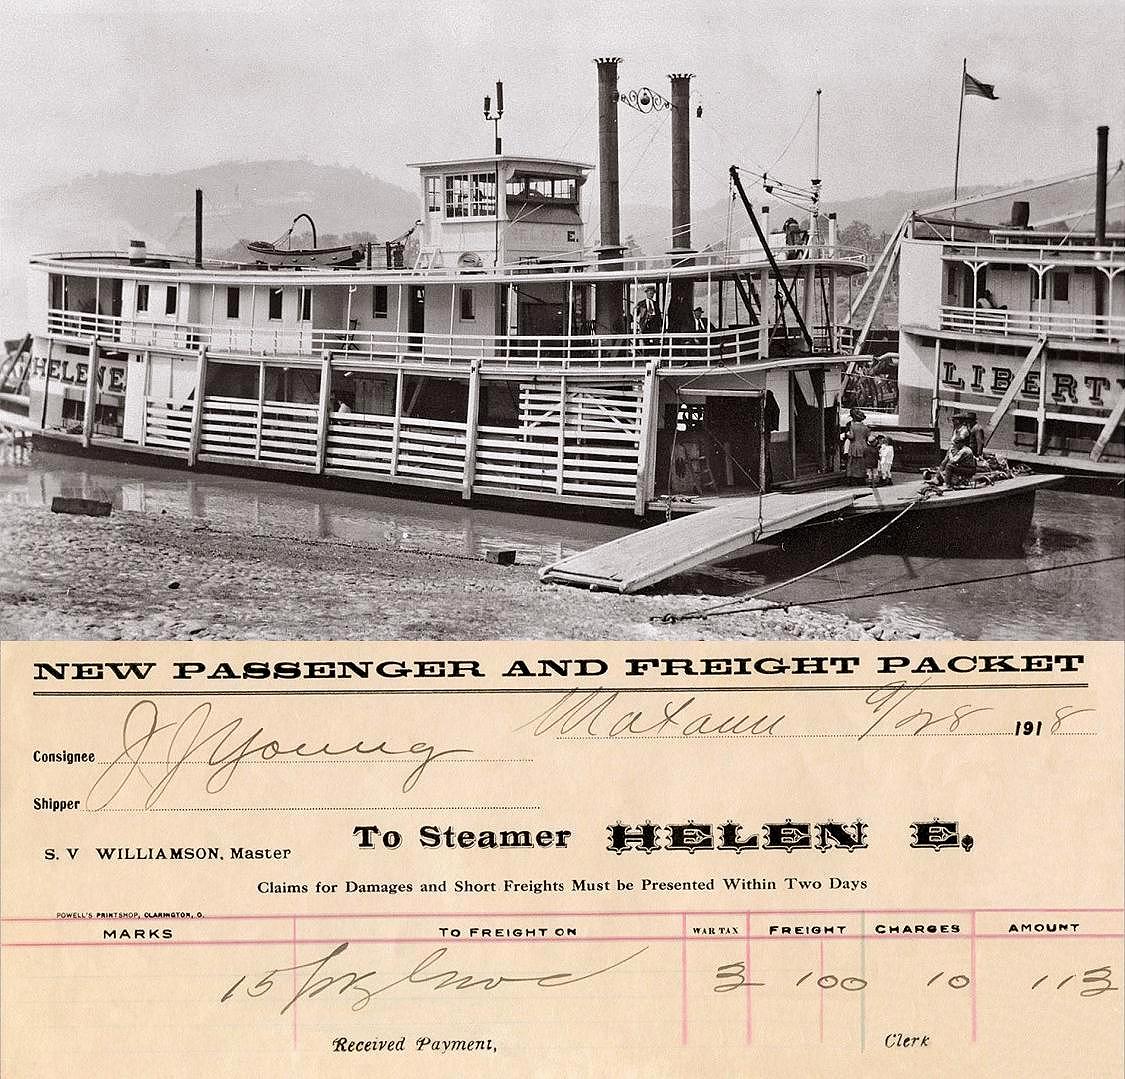 HELENE
LIBERTY
NEW PASSENGER AND FREIGHT PACKET
Matamuu 9/28 1918
Consignee J J Young
Shipper
S. V WILLIAMSON, Master To Steamer HELEN E.
Claims for Damages and Short Freights Must be Presented Within Two Days
POWELL'S PRINTSHOP, CLARINGTON, O.
MARKS TO FREIGHT ON WAR TAX FREIGHT CHARGES AMOUNT
15 pkg 3 100 10 113
Received Payment, Clerk